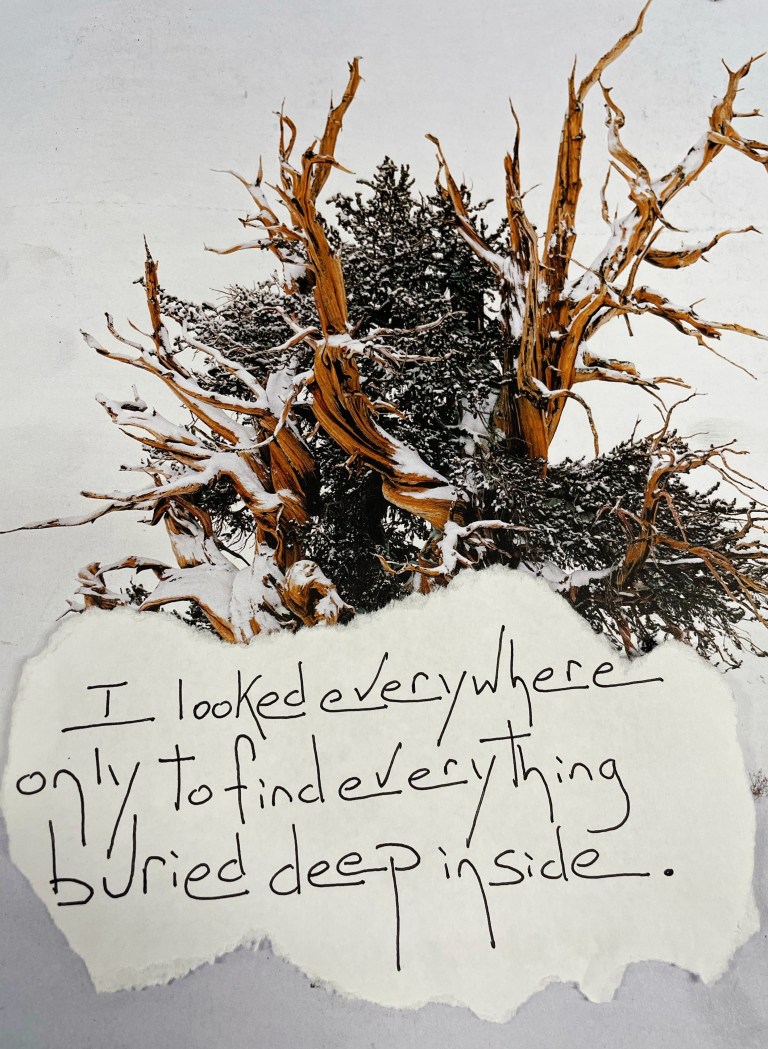 I looked everywhere
only to find everything
buried deep inside.